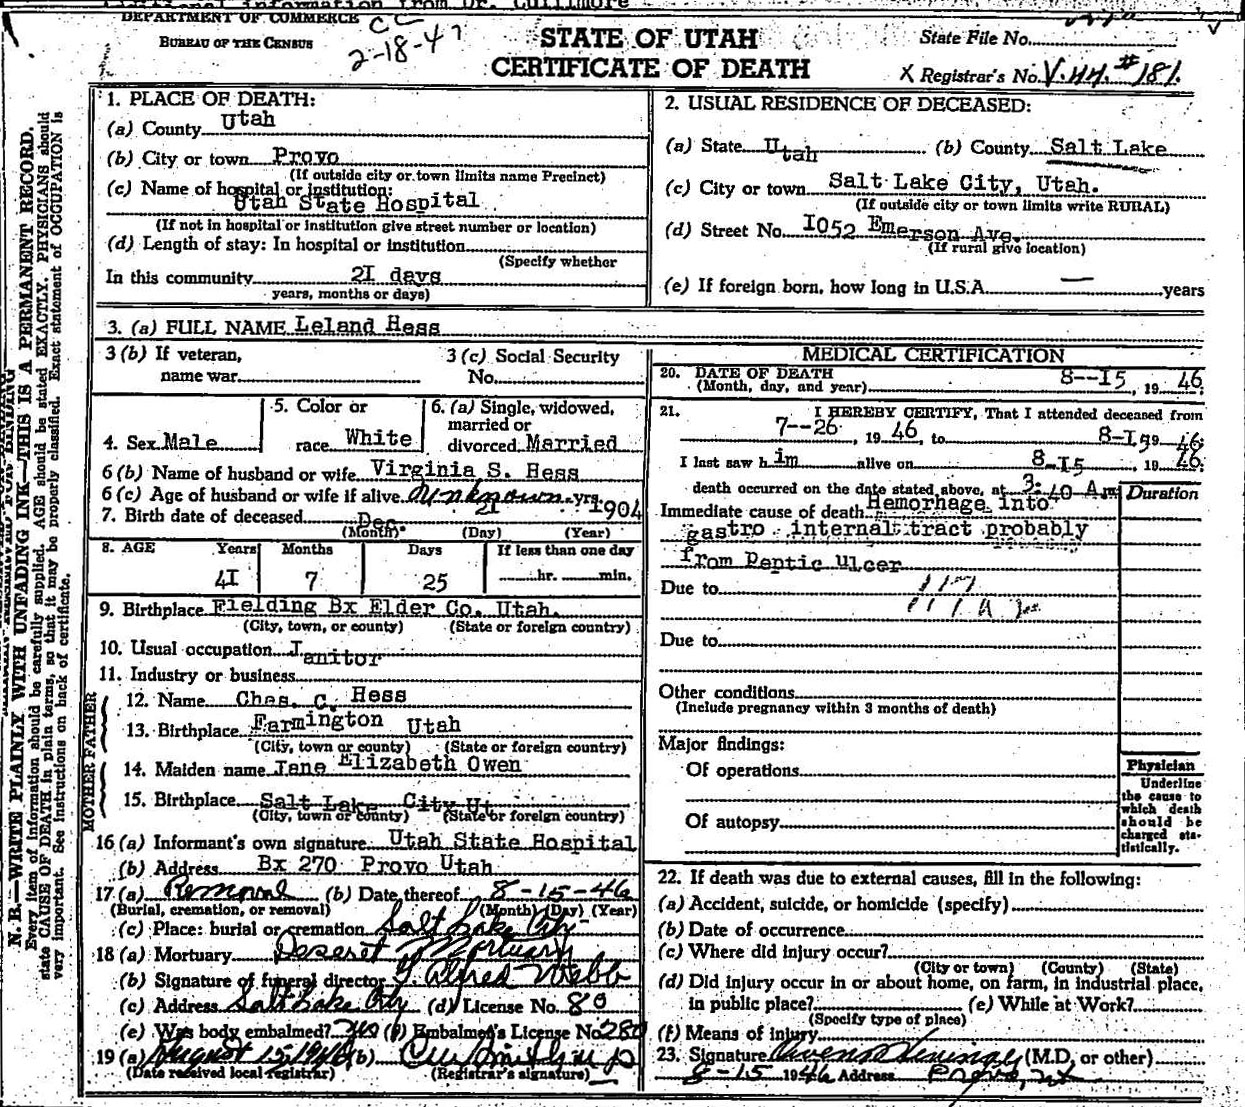 additional information from Dr. Cullimore
DEPARTMENT OF COMMERCE
BUREAU OF THE CENSUS
CC
2-18-47
STATE OF UTAH
CERTIFICATE OF DEATH
State File No.
X Registrar's No. V.44. #181.
N. B.—WRITE PLAINLY WITH UNFADING INK—THIS IS A PERMANENT RECORD.
Every item of information should be carefully supplied. AGE should be stated EXACTLY. PHYSICIANS should
state CAUSE OF DEATH in plain terms, so that it may be properly classified. Exact statement of OCCUPATION is
very important. See instructions on back of certificate.
1. PLACE OF DEATH:
(a) County Utah
(b) City or town Provo
(If outside city or town limits name Precinct)
(c) Name of hospital or institution:
Utah State Hospital
(If not in hospital or institution give street number or location)
(d) Length of stay: In hospital or institution
(Specify whether
In this community 2I days
years, months or days)
2. USUAL RESIDENCE OF DECEASED:
(a) State Utah (b) County Salt Lake
(c) City or town Salt Lake City, Utah.
(If outside city or town limits write RURAL)
(d) Street No. I052 Emerson Ave.
(If rural give location)
(e) If foreign born, how long in U.S.A. — years
3. (a) FULL NAME Leland Hess
3 (b) If veteran,
name war
3 (c) Social Security
No.
4. Sex Male
5. Color or
race White
6. (a) Single, widowed,
married or
divorced Married
6 (b) Name of husband or wife Virginia S. Hess
6 (c) Age of husband or wife if alive unknown yrs.
7. Birth date of deceased Dec. 2I 1904
(Month) (Day) (Year)
8. AGE Years Months Days If less than one day
4I 7 25 hr. min.
9. Birthplace Fielding Bx Elder Co. Utah.
(City, town, or county) (State or foreign country)
10. Usual occupation Janitor
11. Industry or business
FATHER
12. Name Chas. C. Hess
13. Birthplace Farmington Utah
(City, town or county) (State or foreign country)
MOTHER
14. Maiden name Jane Elizabeth Owen
15. Birthplace Salt Lake City Ut
(City, town or county) (State or foreign country)
16 (a) Informant's own signature Utah State Hospital
(b) Address Bx 270 Provo Utah
17 (a) Removal (b) Date thereof 8-15-46
(Burial, cremation, or removal) (Month) (Day) (Year)
(c) Place: burial or cremation Salt Lake City
18 (a) Mortuary Deseret Mortuary
(b) Signature of funeral director Alfred Webb
(c) Address Salt Lake City (d) License No. 80
(e) Was body embalmed? (f) Embalmer's License No. 280
19 (a) August 15, 1946 (b)
(Date received local registrar) (Registrar's signature)
MEDICAL CERTIFICATION
20. DATE OF DEATH
(Month, day, and year) 8--I5, 19 46
21. I HEREBY CERTIFY, That I attended deceased from
7--26, 19 46, to 8-I5 19 46
I last saw h im alive on 8-I5, 19 46
death occurred on the date stated above, at 3:40 A m
Duration
Immediate cause of death Hemorhage into
gastro internal tract probably
from Peptic Ulcer
Due to 117
117 A
Due to
Other conditions
(Include pregnancy within 3 months of death)
Major findings:
Of operations
Of autopsy
Physician
Underline
the cause to
which death
should be
charged sta-
tistically.
22. If death was due to external causes, fill in the following:
(a) Accident, suicide, or homicide (specify)
(b) Date of occurrence
(c) Where did injury occur?
(City or town) (County) (State)
(d) Did injury occur in or about home, on farm, in industrial place,
in public place? (e) While at Work?
(Specify type of place)
(f) Means of injury
23. Signature (M.D. or other)
8-15 1946 Address Provo, Ut